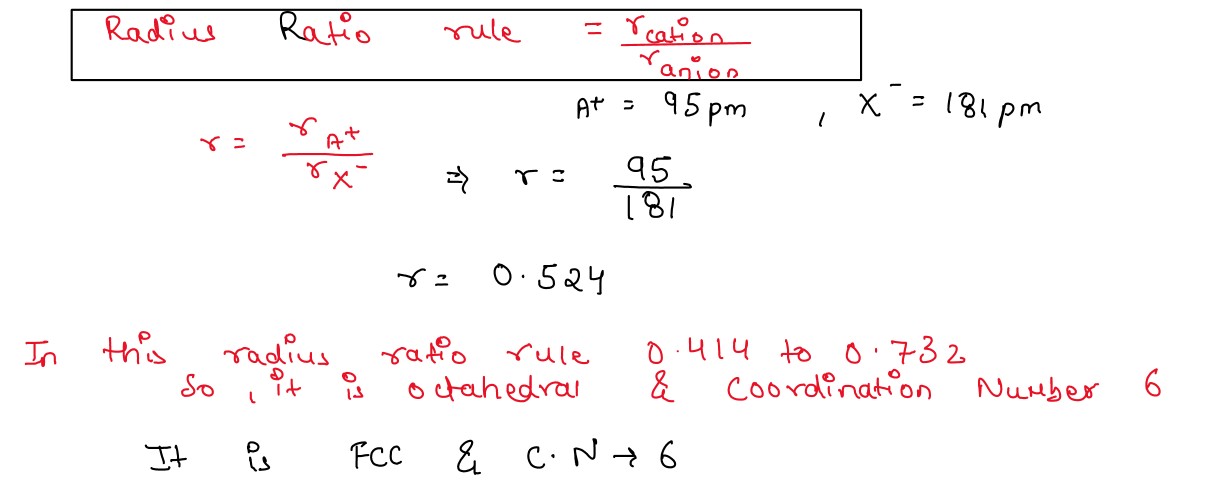 Radius Ratio rule = r cation / r anion
A+ = 95 pm , X⁻ = 181 pm
r = r A+ / r X⁻ ⇒ r = 95 / 181
r = 0.524
In this radius ratio rule 0.414 to 0.732
So, it is octahedral & Coordination Number 6
It is FCC & C.N → 6